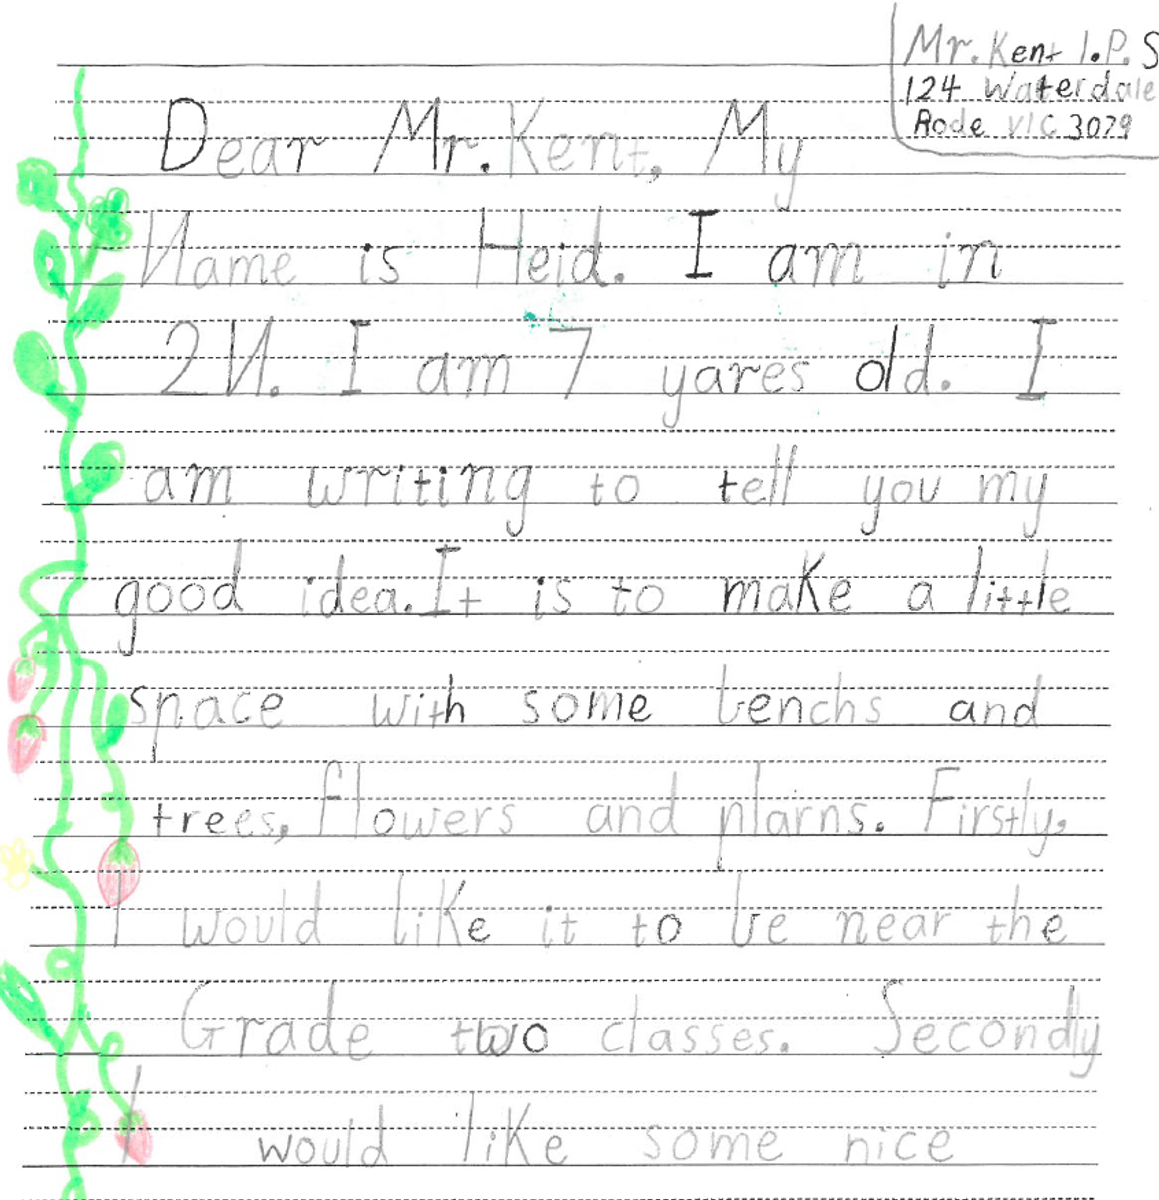 Mr. Kent I.P.S
124 Waterdale
Rode VIC 3079
Dear Mr. Kent, My
Name is Heid. I am in
2N. I am 7 yares old. I
am writing to tell you my
good idea. It is to make a little
space with some benchs and
trees, flowers and plarns. Firstly,
I would like it to be near the
Grade two classes. Secondly
I would like some nice